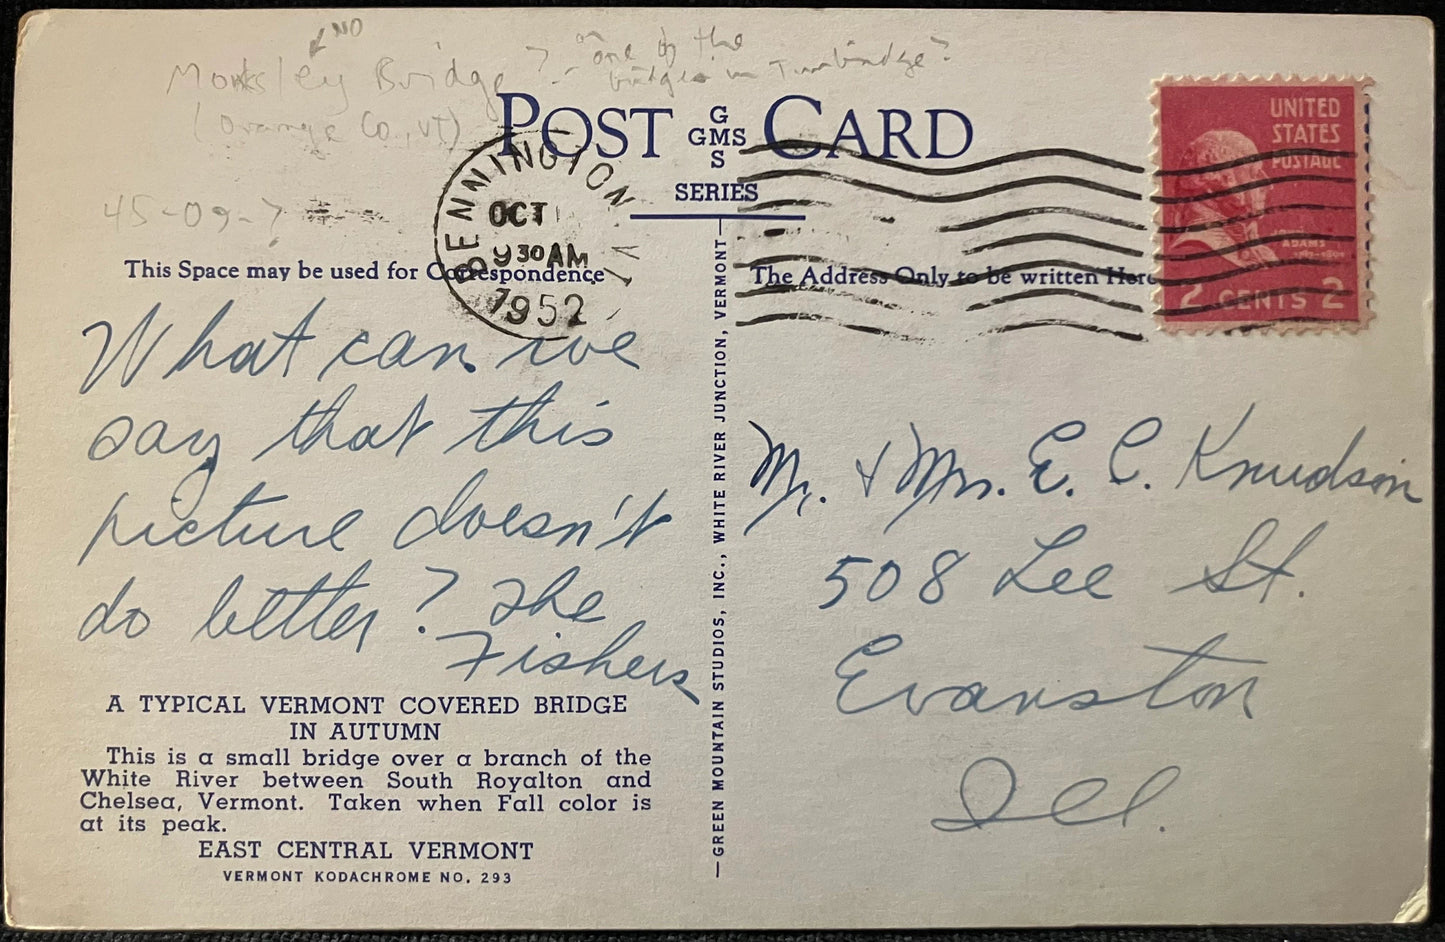 NO
Monksley Bridge ? - or one of the
bridges in Tunbridge?
(Orange Co., VT)
45-09-7
POST CARD
G
GMS
S
SERIES
BENNINGTON
OCT
9 30 AM
1952
VT
UNITED
STATES
POSTAGE
ADAMS
2 CENTS 2
This Space may be used for Correspondence
The Address Only to be written Here
What can we
say that this
picture doesn't
do better? The
Fishers
A TYPICAL VERMONT COVERED BRIDGE
IN AUTUMN
This is a small bridge over a branch of the
White River between South Royalton and
Chelsea, Vermont. Taken when Fall color is
at its peak.
EAST CENTRAL VERMONT
VERMONT KODACHROME NO. 293
— GREEN MOUNTAIN STUDIOS, INC., WHITE RIVER JUNCTION, VERMONT —
Mr. & Mrs. E. C. Knudson
508 Lee St.
Evanston
Ill.